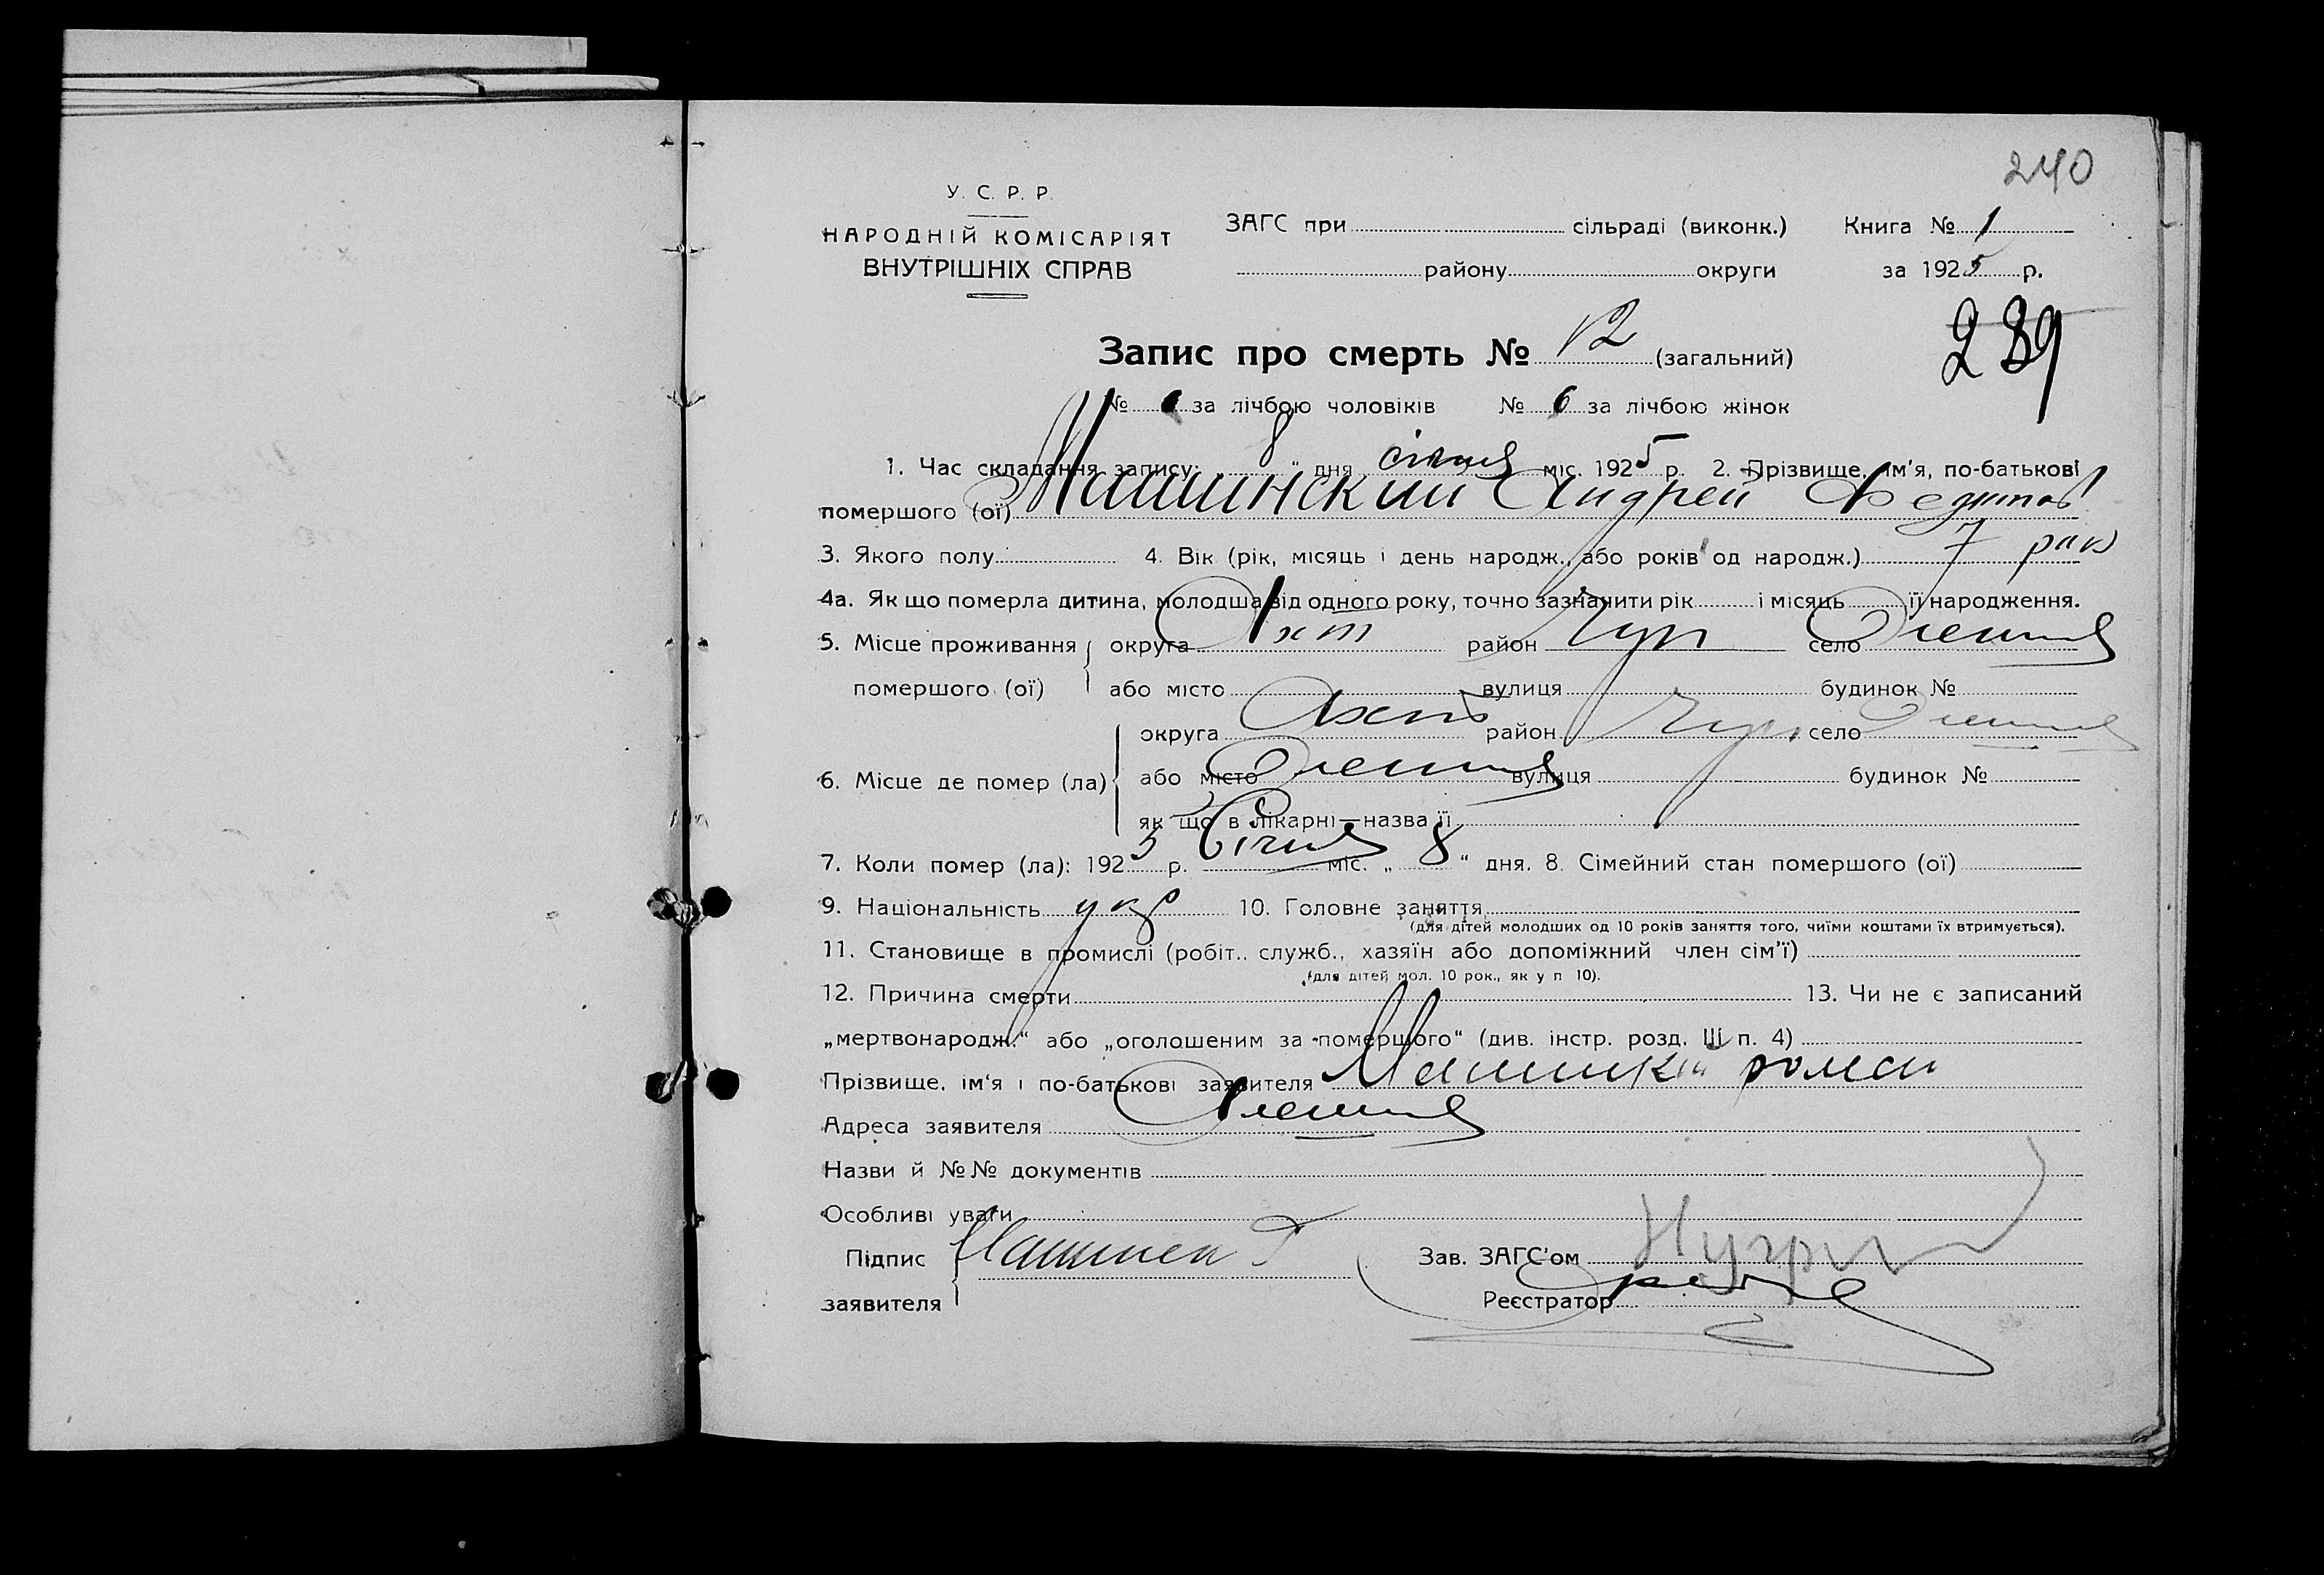 240
У. С. Р. Р.
НАРОДНІЙ КОМІСАРІЯТ
ВНУТРІШНІХ СПРАВ
ЗАГС при сільраді (виконк.)
району округи
Книга № 1
за 1925 р.
289
Запис про смерть № 12 (загальний)
№ за лічбою чоловіків № 6 за лічбою жінок
1. Час складання запису: „ 8 “ дня січня міс. 1925 р. 2. Прізвище, ім'я, по-батькові
помершого (ої) Машинский Андрей
3. Якого полу 4. Вік (рік, місяць і день народж., або років од народж.) 7 рик
4а. Як що померла дитина, молодша від одного року, точно зазначити рік і місяць її народження.
5. Місце проживання округа Ахт район Чуп село Олешня
помершого (ої) або місто вулиця будинок №
округа Ахт район Чуп село Олешня
6. Місце де помер (ла) або місто Олешня вулиця будинок №
як що в лікарні—назва її
7. Коли помер (ла): 1925 р. Січня міс. „ 8 “ дня. 8. Сімейний стан помершого (ої)
9. Національність укр 10. Головне заняття
(для дітей молодших од 10 років заняття того, чиїми коштами їх втримується).
11. Становище в промислі (робіт., служб., хазяїн або допоміжний член сім'ї)
(для дітей мол. 10 рок., як у п 10).
12. Причина смерти 13. Чи не є записаний
„мертвонародж.“ або „оголошеним за помершого“ (див. інстр. розд. III п. 4)
Прізвище, ім'я і по-батькові заявителя роман
Адреса заявителя Олешня
Назви й №№ документів
Особливі уваги
Підпис
заявителя
Зав. ЗАГС'ом
Реєстратор